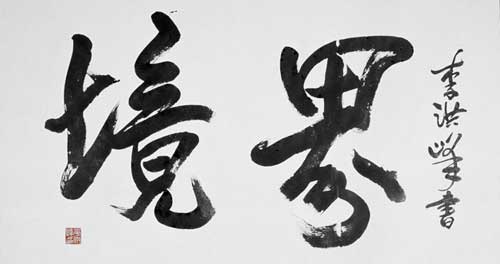 境界
李洪峰書